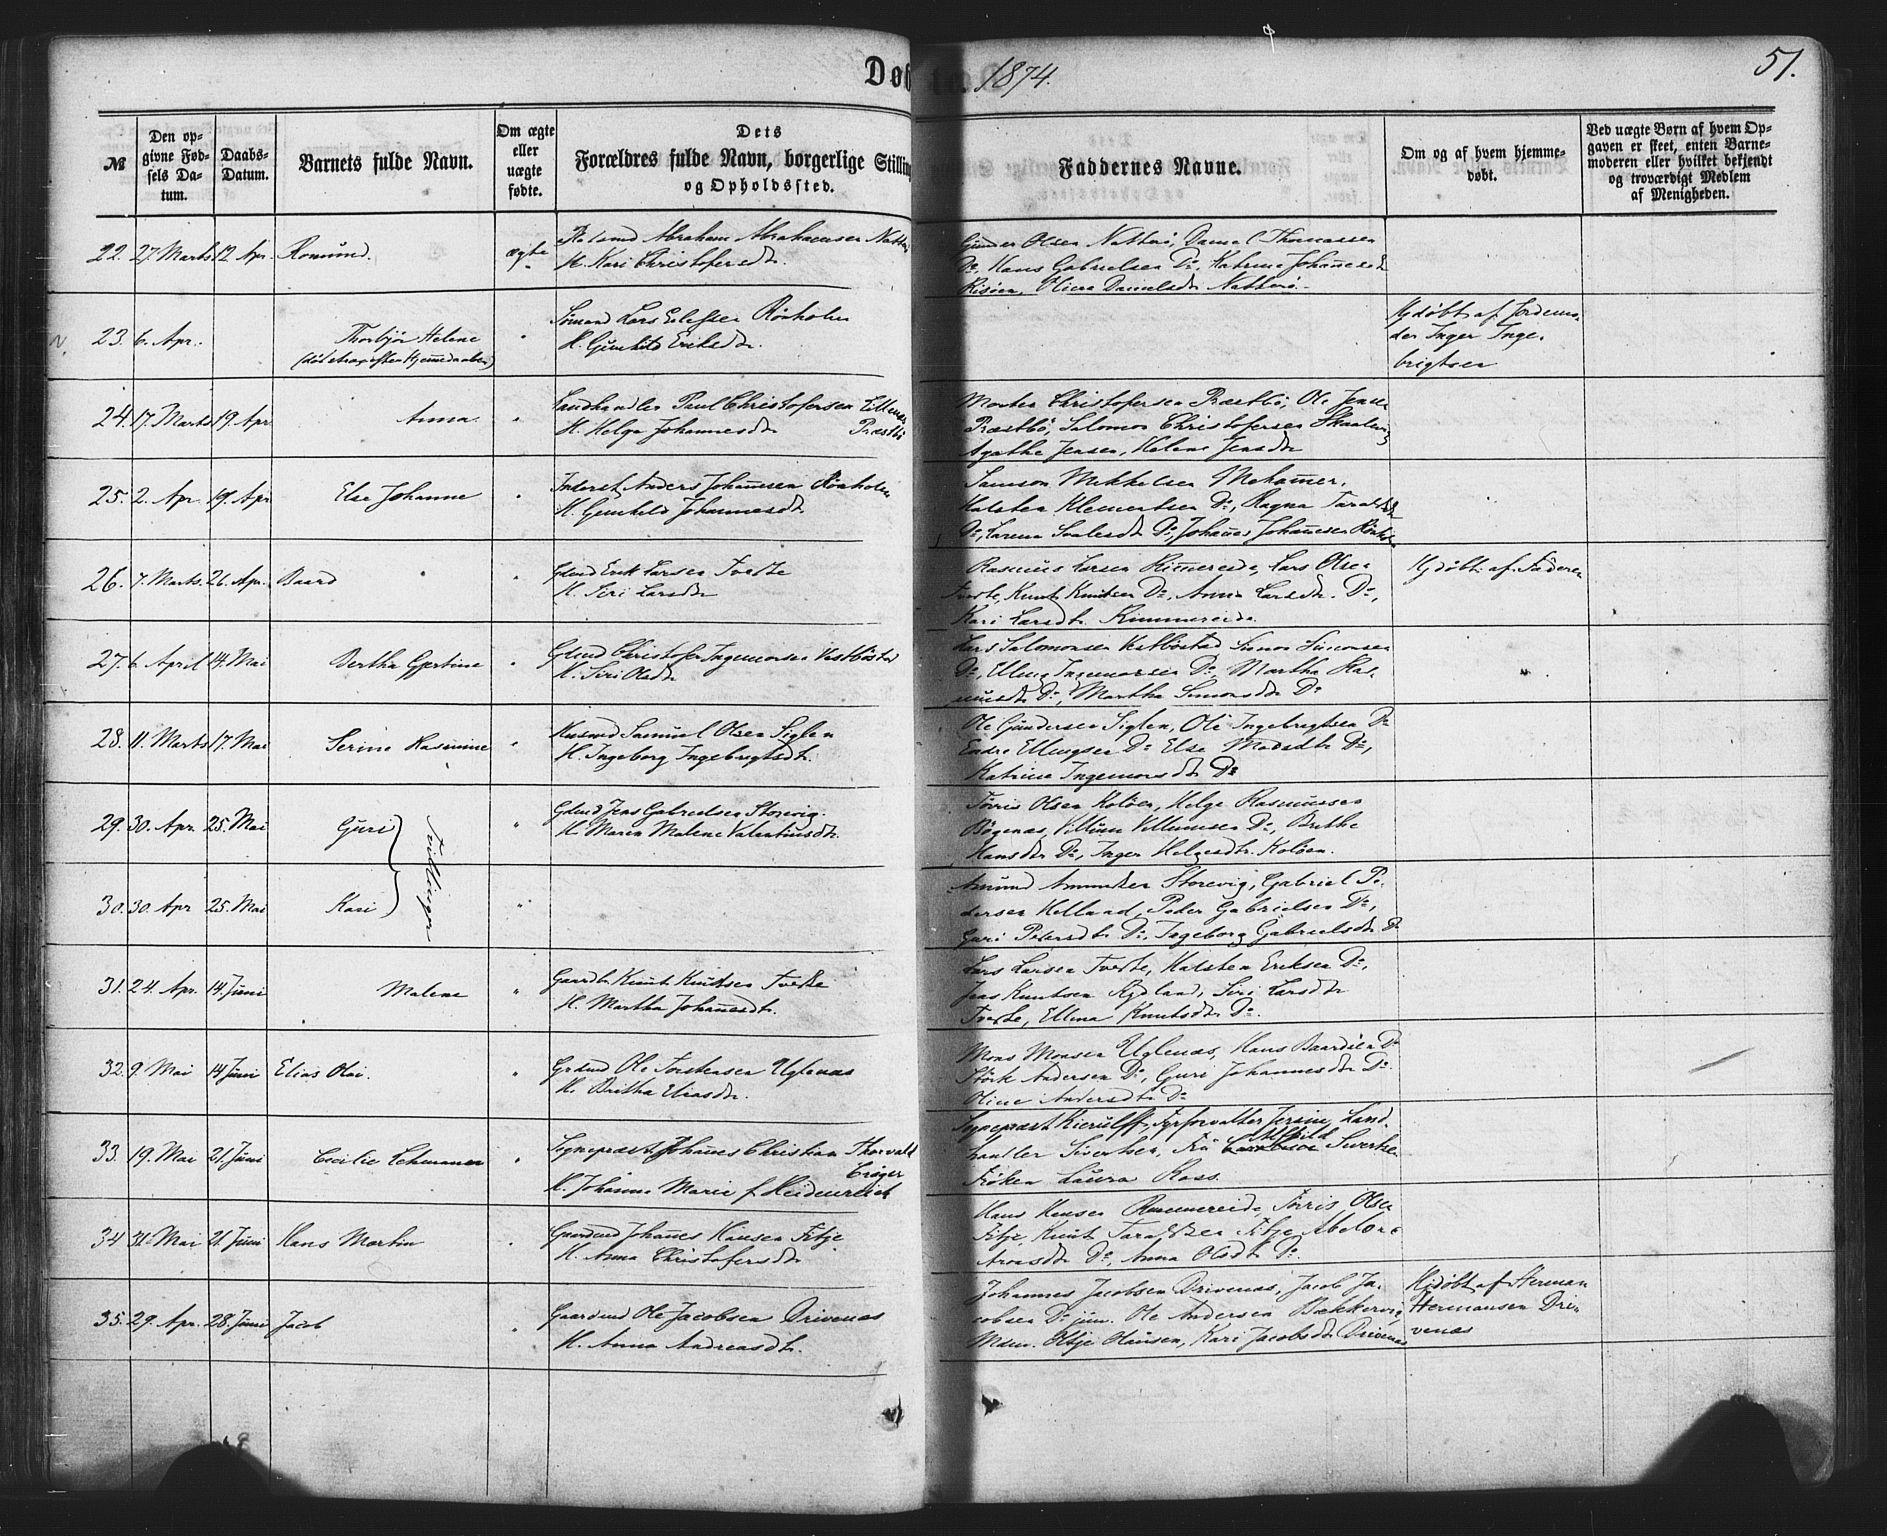 Døbte 1874. 51.
№
Den opgivne Fødsels Datum.
Daabs-Datum.
Barnets fulde Navn.
Om ægte eller uægte fødte.
Dets Forældres fulde Navn, borgerlige Stilling og Opholdssted.
Faddernes Navne.
Om og af hvem hjemmedøbt.
Ved uægte Børn af hvem Opgaven er skeet, enten Barnemoderen eller hvilket bekjendt og troværdigt Medlem af Menigheden.
22. 27 Marts 12 Apr. Romund. ægte
Abraham Abrahamsen
H. Kari Christofersdtr.
Gunder Olsen Natterö, Daniel Thomassen
Do, Hans Gabrielsen Do, Katrina Johannesd
Risöen, Oliva Danielsdtr Natterö.
23. 6. Apr. Thorbjör Helene "
(död strax efter Hjemmedaaben)
Lars Ellefsen Rönholm
H. Gunhild Eriksdtr.
Hjdøbt af Jordemo-
der Inger Inge-
brigtsen
24. 17. Marts 19. Apr. Anna. "
Landhandler Paul Christofersen
H. Helga Johannesdtr Præstbö
Morten Christofersen Præstbö, Ole Jensen
Præstbö, Salomon Christofersen
Agathe Jensen, Helene Jensdtr
25. 2. Apr. 19. Apr Else Johanne "
Inderst Anders Johannesen Rönholm
H. Gunhild Johannesdtr.
Samson Mikkelsen Mehamer,
Halsten Klementsen Do, Ragna
Do, Larena Do, Johannes Johannesen
26. 7. Marts. 26. Apr. Baard "
Gbmd Erik Larsen Tveite
H. Siri Larsdtr
Rasmus Larsen Rimereide, Lars Olsen
Tveite, Knut Knutsen Do, Anna Larsdtr. Do,
Kari Larsdtr. Rimmereide.
Hjdøbt af Faderen
27. 6. April 14. Mai Bertha Gjertine "
Gbmd Christofer Ingemorsen Vestböstad
H. Siri Olsdtr
Lars Salomonsen Vestböstad Simon Simonsen
Do, Elling Ingemorsen Do, Martha Ras-
musdtr Do, Martha Simonsdtr Do
28. 11. Marts 17. Mai Serine Rasmine "
Husmd Samuel Olsen Siglen
H. Ingeborg Ingebrigtsdtr.
Ole Gundersen Siglen, Ole Ingebrigtsen Do
Endre Ellingsen Do Else Do,
Katrine Ingemorsdtr Do
29. 30. Apr. 25. Mai Guri "
Tvillinger
Gbmd Jens Gabrielsen Storevig.
H. Maren Malene
Torris Olsen Kolöen, Helge Rasmussen
Bögenæs, Villum Villumsen Do, Brithe
Hansdtr Do, Inger Helgesdtr. Kolöen.
30. 30. Apr 25. Mai Kari "
Amund Amundsen Storevig, Gabriel Pe-
dersen Helland, Peder Gabrielsen Do,
Guri Petersdtr Do, Ingeborg Gabrielsdtr Do
31. 24. Apr. 14. Juni Malene "
Gaardbr. Knut Knutsen Tveite
H. Martha Johannesdtr.
Lars Larsen Tveite, Halsten Eriksen Do,
Jens Knutsen Rydland, Siri Larsdtr
Tveite, Ellena Knutsdtr Do.
32. 9. Mai 14 Juni Elias Olai. "
Grdmd Ole Torstensen Uglenæs
H. Britha Eliasdtr.
Mons Monsen Uglenæs, Hans Baardsen Do
Störk Andersen Do, Guri Johannesdtr Do
Oline Andersdtr Do
33. 19. Mai 21. Juni Cecilie Lehmann "
Sognepræst Johannes Christian Thorvald
Cröger
H. Johanne Marie f. Heidenreich
Sognepræst Kierulff, Land-
handler Sivertsen, Fru Sivertsen
Fröken Laura Ross.
34 31. Mai 21. Juni Hans Martin "
Gaardmd Johannes Hansen Fitje
H. Anna Christofersdtr
Hans Hansen Rimmereide, Torris Olsen
Fitje Knut Fitje
Do, Anna Olsdtr Do.
35. 29. Apr. 28. Juni Jacob "
Gaardmd Ole Jacobsen Drivenæs
H. Anna Andreasdtr.
Johannes Jacobsen Drivenæs, Jacob Ja-
cobsen Do jun. Ole Andersen Bækkervig,
Hansen, Kari Jacobsdtr Drivenæs
Hjdøbt af Herman
Hermansen Dri-
venæs